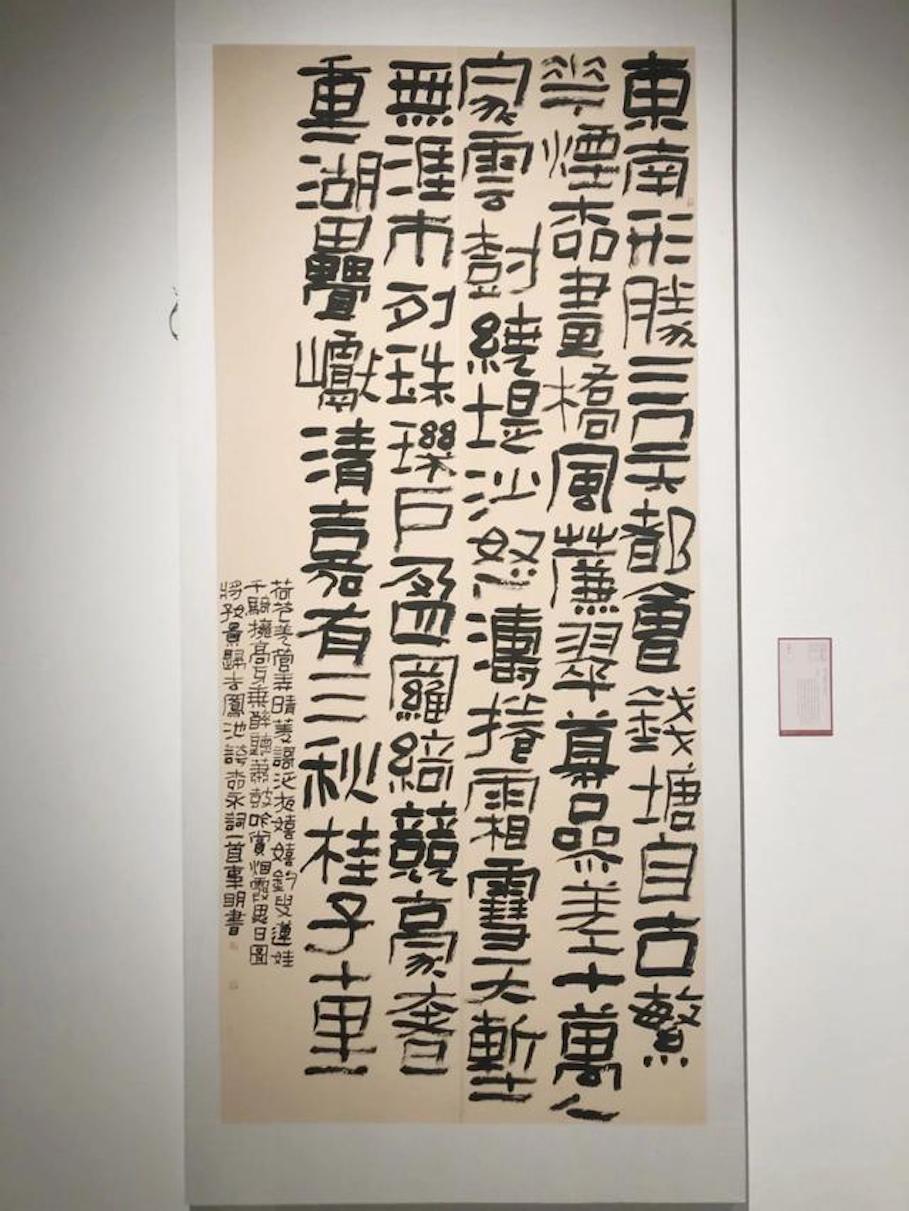 東南形勝三吳都會錢塘自古繁
華煙柳畫橋風簾翠幕參差十萬人
家雲樹繞堤沙怒濤捲霜雪天塹
無涯市列珠璣戶盈羅綺競豪奢
重湖疊巘清嘉有三秋桂子十里
荷花羌管弄晴菱謌泛夜嬉嬉釣叟蓮娃
千騎擁高牙乘醉聽簫鼓吟賞烟霞異日圖
將好景歸去鳳池誇柳永詞一首明書